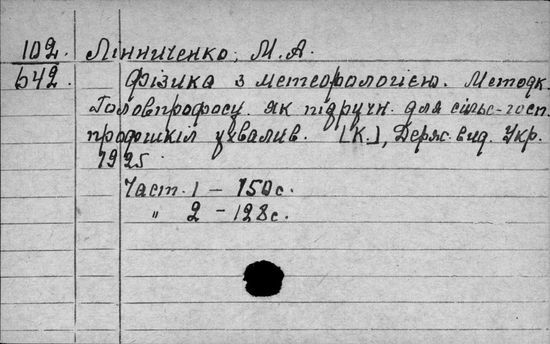 102. Лінниченко, М. А.
642. Фізика з метеорологією. Методк.
Головпрофосу як підручн. для сільс-госп.
профшкіл ухвалив. [К.], Держ. вид. Укр.
1925.
Част. 1 – 150 с.
" 2 – 128 с.